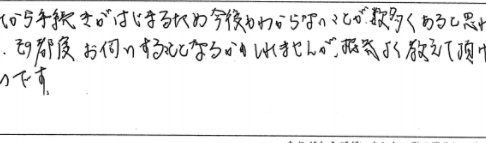 てから手続きがはじまるため今後もわからないことが数多くあると思わ
、その都度、お伺いすることとなるかもしれませんが、根気よく教えて頂け
いです。